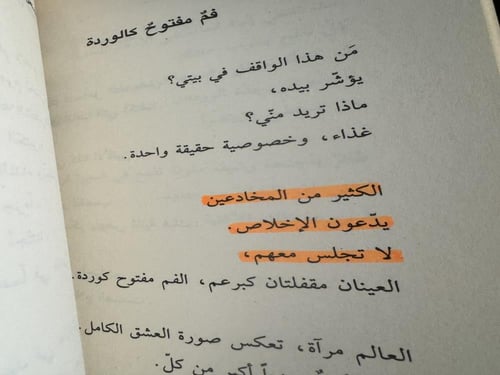 فمٌ مفتوحٌ كالوردة
مَن هذا الواقف في بيتي؟
يؤشّر بيده،
ماذا تريد منّي؟
غذاء، وخصوصية حقيقة واحدة.
الكثير من المخادعين
يدّعون الإخلاص.
لا تجلس معهم،
العينان مقفلتان كبرعم، الفم مفتوح كوردة.
العالم مرآة، تعكس صورة العشق الكامل.
أكبر من كلّ